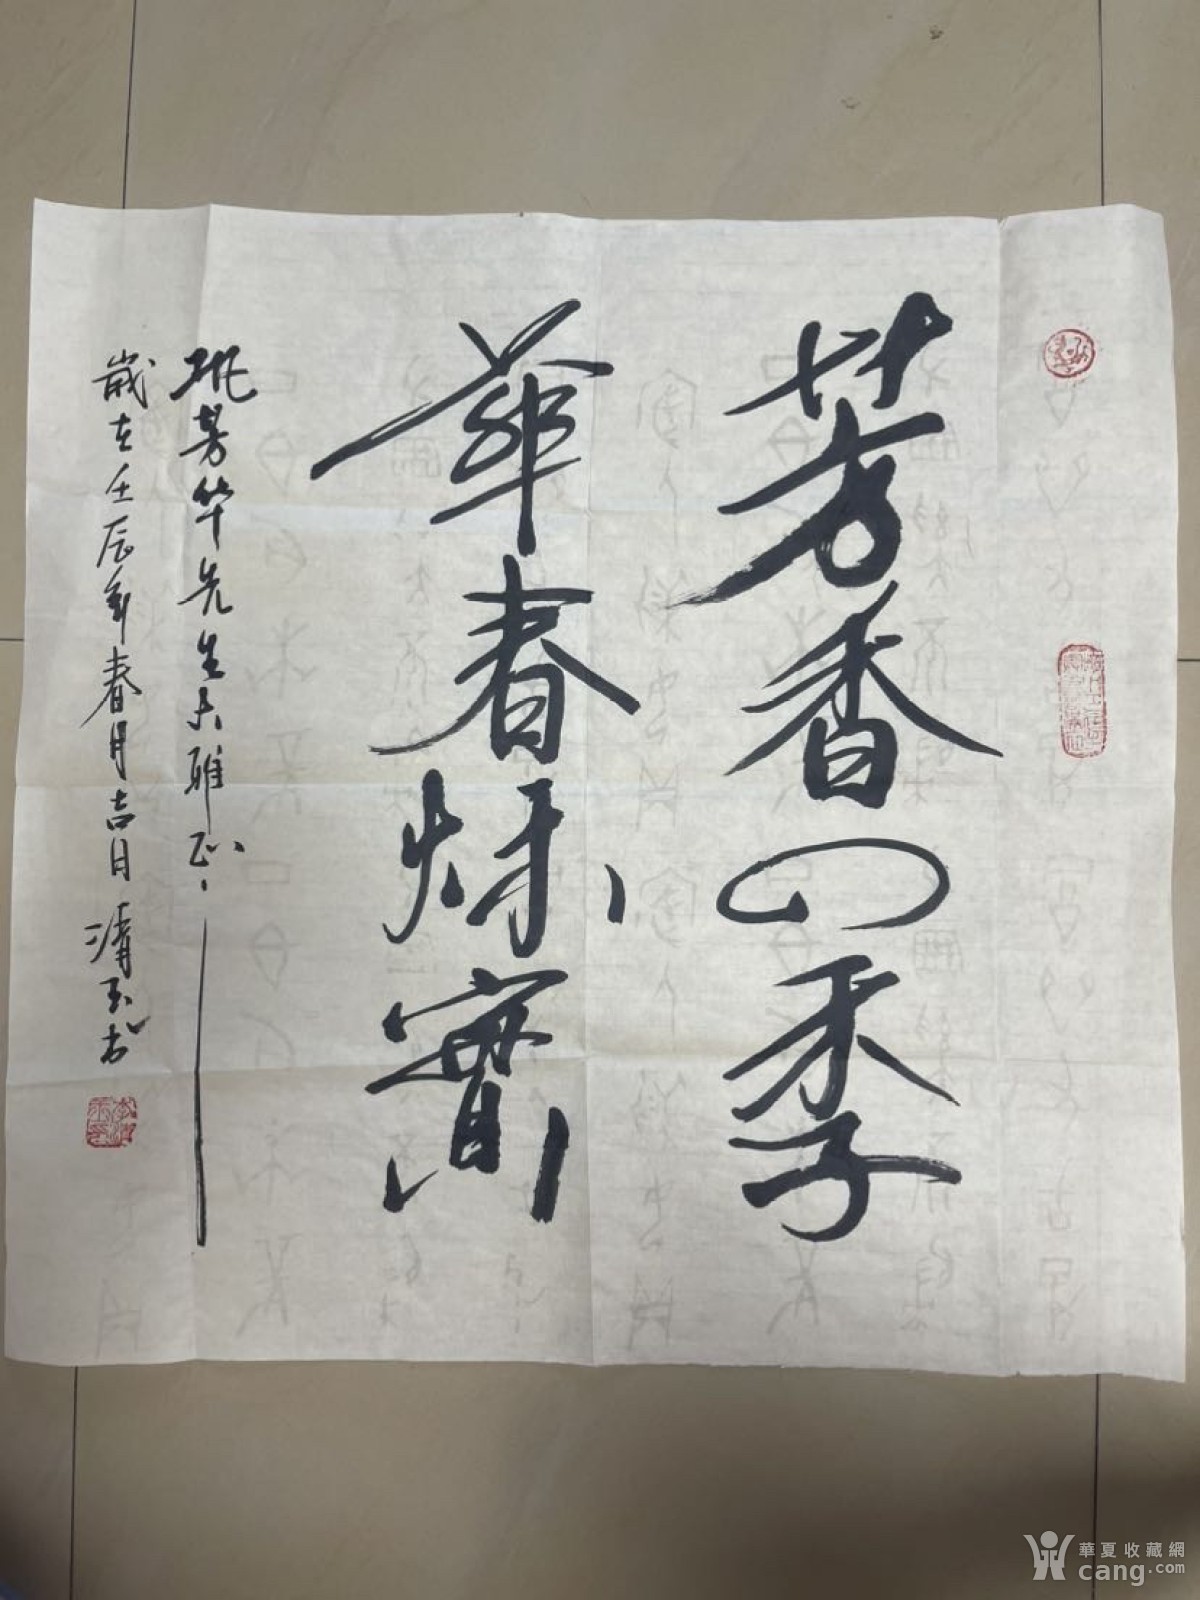 芳香四季
華春秋實
芳华先生大雅正
歲在壬辰年春月吉日清玉书
華夏收藏網
cang.com